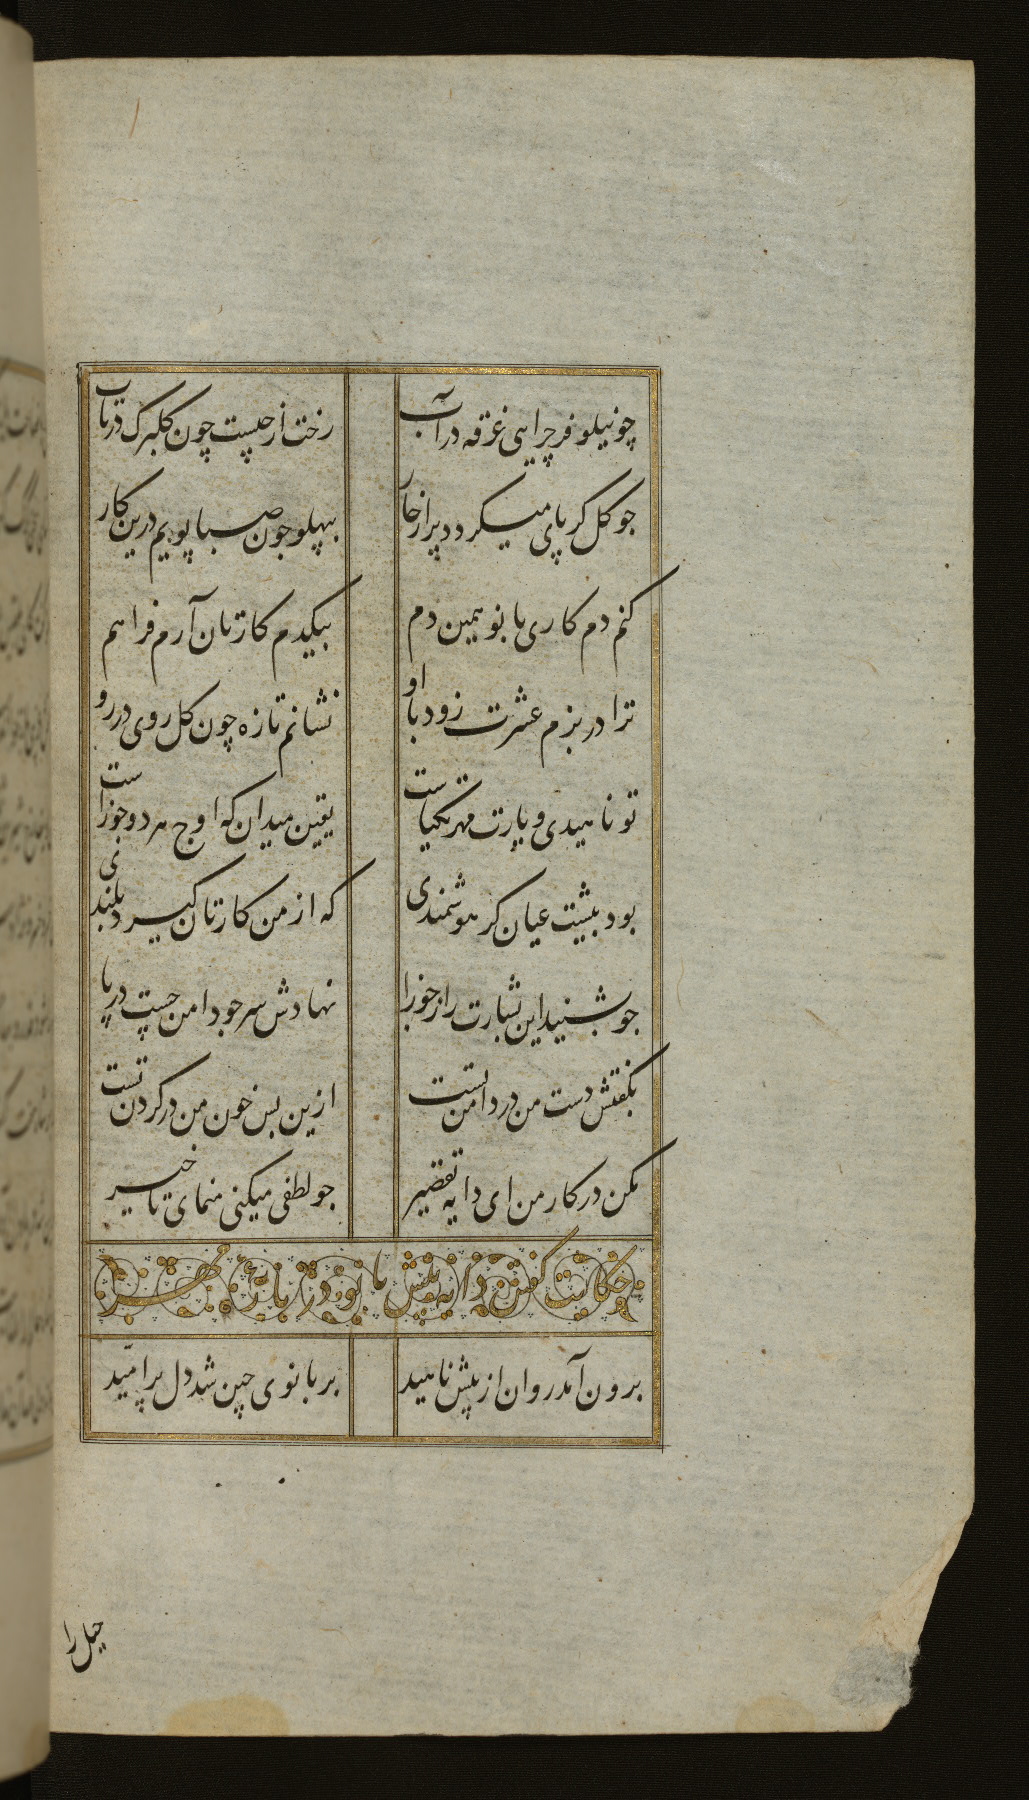 چو نیلوفر چرایی غرقه در آب رخت از چیست چون کلبرک در تاب
چو کل کر پای میکردد پر از خار بپهلو چون صبا پویم درین کار
کنم دم کاری با تو همین دم بیکدم کارتان آرم فراهم
ترا در بزم عشرت زود با او نشانم تازه چون کل روی در رو
تو ناهیدی و یارت مهر یکتاست یقین میدان که اوج هر دو جوزاست
بود پیشت عیان کر هوشمندی که از من کارتان کیرد بلندی
چو بشنید این بشارت را ز جوزا نهادش سر چو دامن چست در پا
بکفتش دست من در دامن تست ازین پس خون من در کردن تست
مکن در کار من ای دایه تقصیر چو لطفی میکنی منمای تاخیر
حکایت کفتن دایه پیش بانو در باره مهر
برون آمد روان از پیش ناهید بر بانوی چین شد دل پر امّید
حیل را